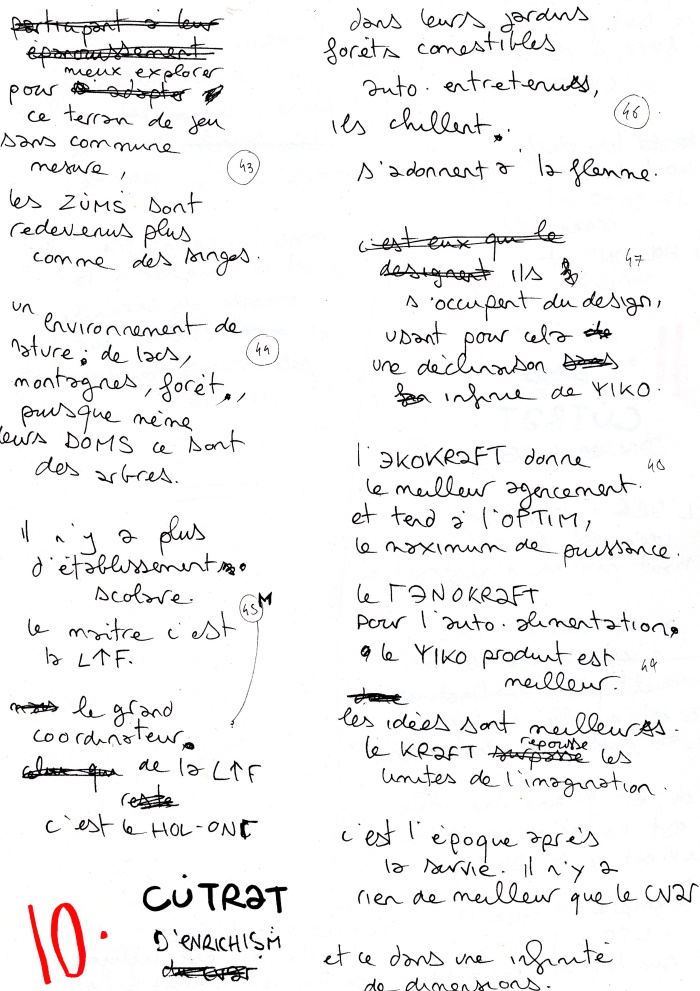 participant à leur
épanouissement
mieux explorer
pour s'adapter
ce terrain de jeu
sans commune
mesure,
43
les ZÙMS sont
redevenus plus
comme des singes.
un environnement de
nature : de lacs,
44
montagnes, forêt,
puisque même
leurs DOMS ce sont
des arbres.
il n'y a plus
d'établissement
scolaire.
45 M
le maître c'est
la L↑F.
mais le grand
coordinateur
celui qui de la L↑F
reste
c'est le HOL-ONE
10.
CÙTRAT
D'ENRICHISM
du CVAR
dans leurs jardins
forêts comestibles
auto.entretenus,
46
ils chillent.
s'adonnent à la flemme.
c'est eux qui le
designent ils
47
s'occupent du design,
usant pour cela de
une déclinaison sans
fin infinie de YIKO.
l'ƏKOKRAFT donne
48
le meilleur agencement.
et tend à l'OPTIM,
le maximum de puissance.
le ΓƏNOKRAFT
pour l'auto.alimentation.
le YIKO produit est
49
meilleur.
donc
les idées sont meilleures.
repousse
le KRAFT surpasse les
limites de l'imagination.
c'est l'époque après
la survie. il n'y a
rien de meilleur que le CVAR
et ce dans une infinité
de dimensions.